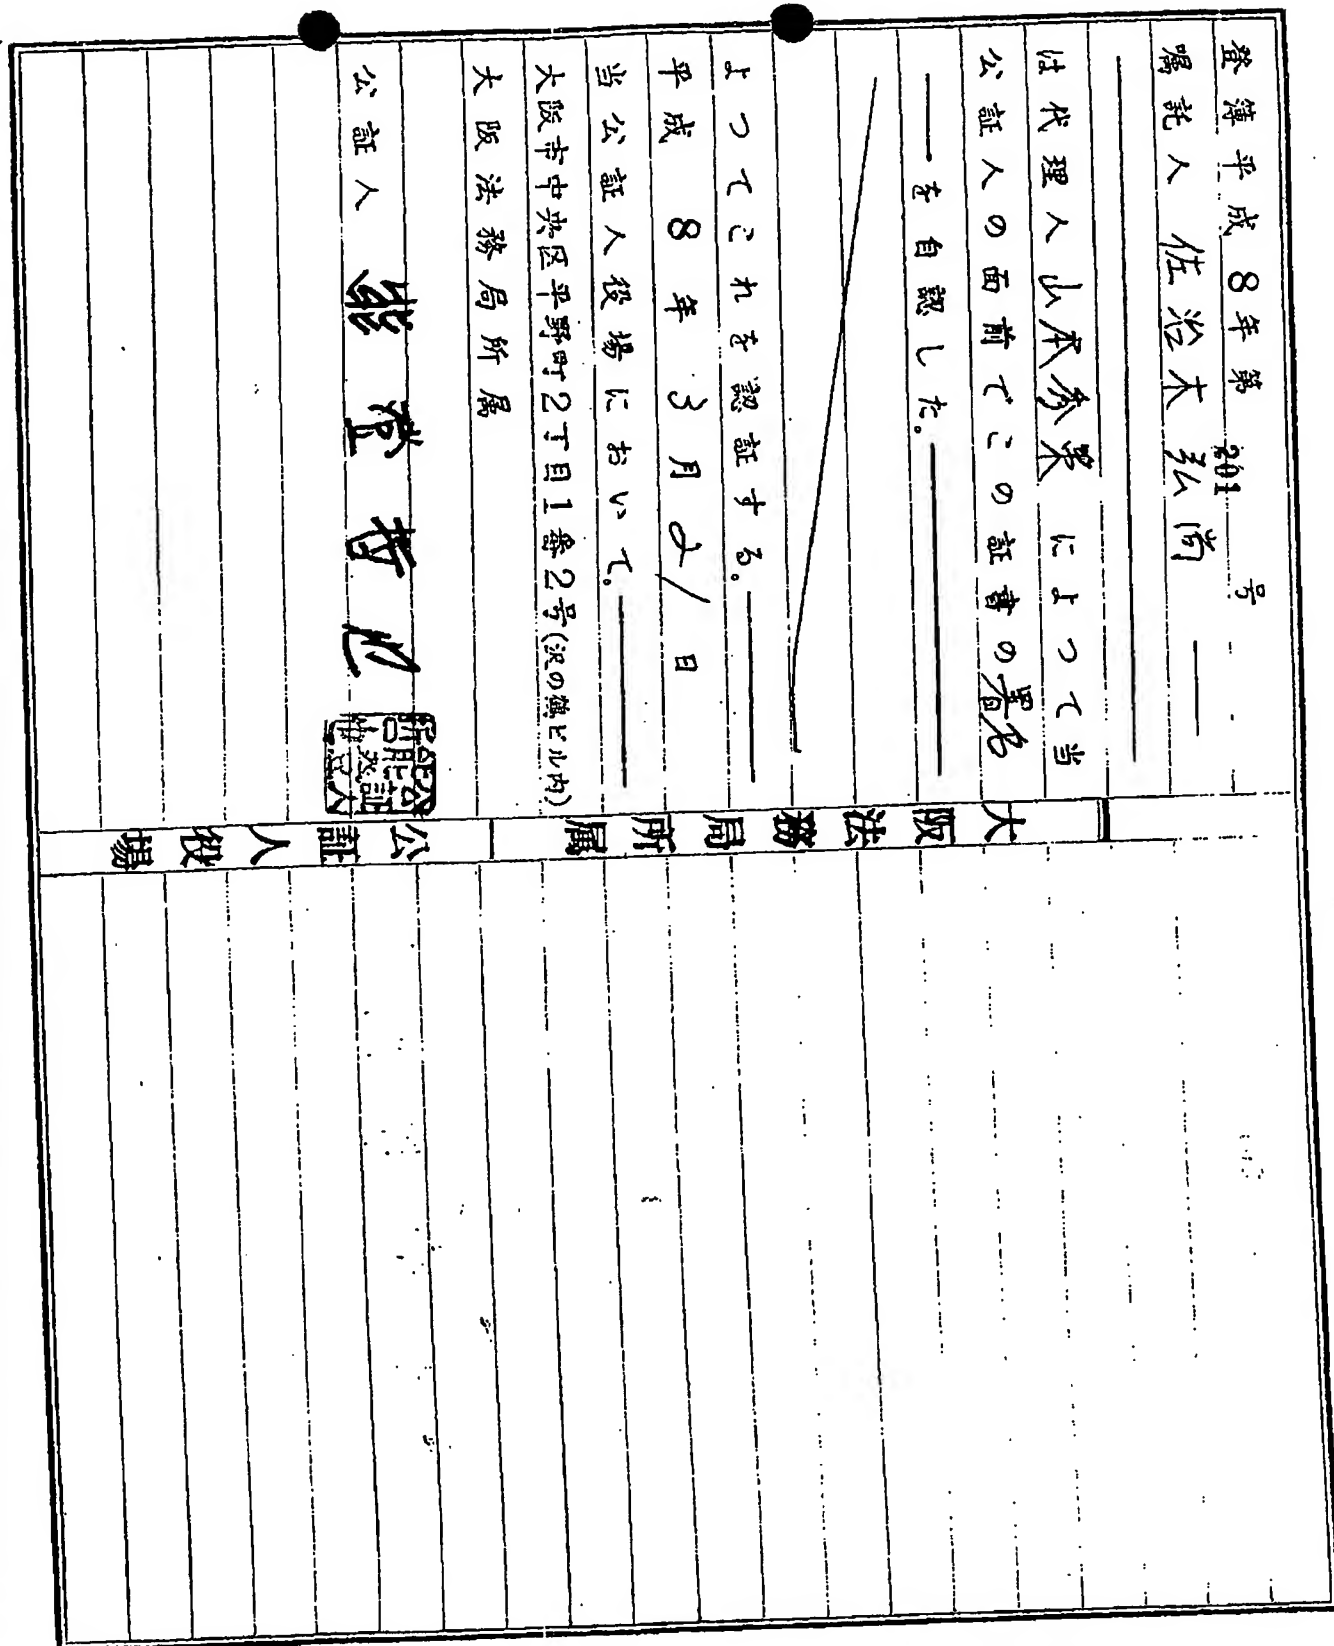 登簿平成8年第201号
嘱託人 佐治木 弘尚
は代理人 山本 によって当
公証人の面前でこの証書の署名
を自認した。
よってこれを認証する。
平成 8年 3月21日
当公証人役場において。
大阪市中央区平野町2丁目1番2号(沢の鶴ビル内)
大阪法務局所属
公証人
大阪法務局所属
公証人役場